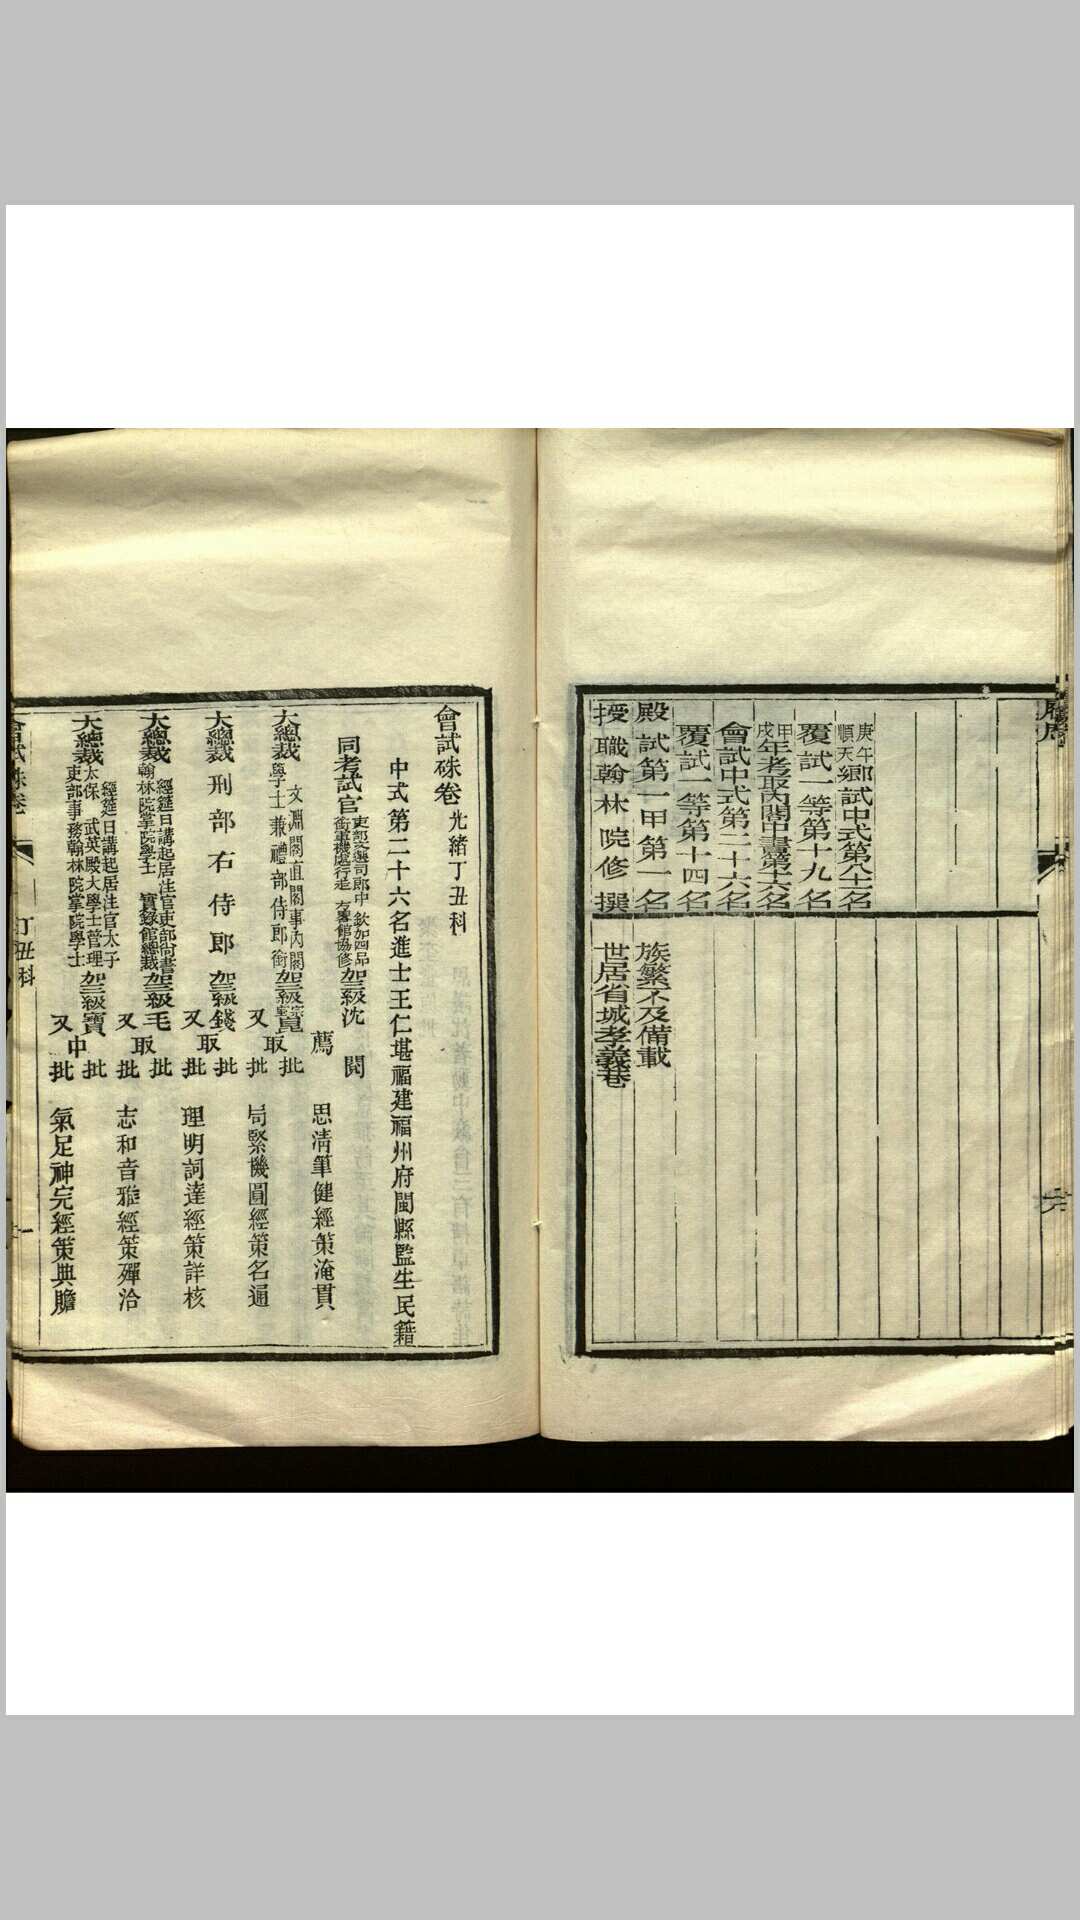 履歷
庚午順天鄉試中式第八十一名
覆試一等第十九名
甲戌年考取內閣中書第十六名
會試中式第二十六名
覆試一等第十四名
殿試第一甲第一名
授職翰林院修撰
族繁不及備載
世居省城孝義巷
會試硃卷 光緒丁丑科
中式第二十六名進士王仁堪福建福州府閩縣監生民籍
同考試官 吏部文選司郎中 欽加四品銜軍機處行走 方畧館協修 加三級沈 閱
薦
思清筆健經策淹貫
大總裁 文淵閣直閣事內閣學士兼禮部侍郎銜 加三級宗室崑 批
取
又批
局緊機圓經策名通
大總裁 刑部右侍郎 加三級錢 批
取
又批
理明詞達經策詳核
大總裁 經筵日講起居注官吏部尚書翰林院掌院學士 實錄館總裁 加三級毛 批
取
又批
志和音雅經策殫洽
大總裁 經筵日講起居注官太子太保 武英殿大學士管理吏部事務翰林院掌院學士 加三級寶 批
中
又批
氣足神完經策典贍
會試硃卷
丁丑科
一